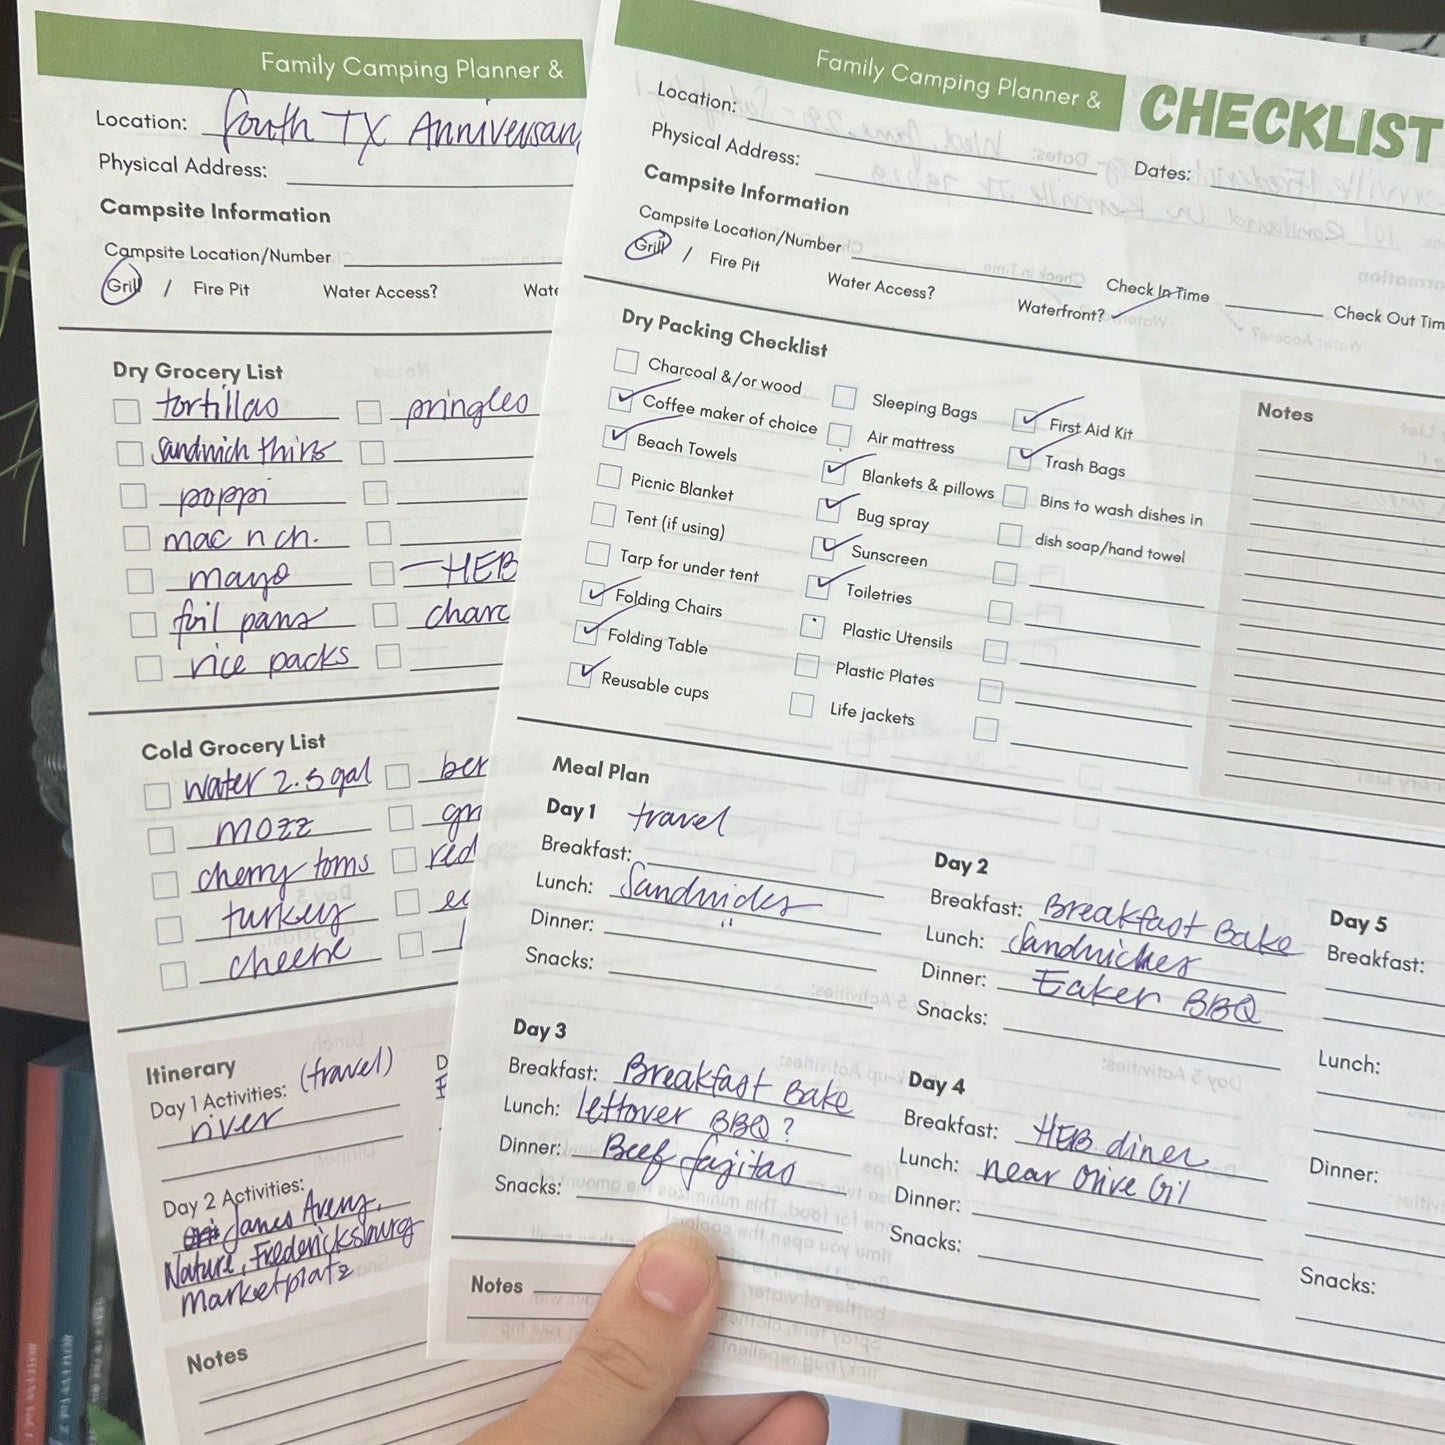 Family Camping Planner &
Location: South TX Anniversary
Physical Address:
Campsite Information
Campsite Location/Number
Grill / Fire Pit Water Access?
Dry Grocery List
tortillas pringles
sandwich thins
poppi
mac n ch.
mayo HEB
foil pans charc
rice packs
Cold Grocery List
water 2.5 gal ber
mozz gr
cherry toms red
turkey
cheese
Itinerary
Day 1 Activities: (travel)
river
Day 2 Activities:
James Avery,
Nature, Fredericksburg
Marketplatz
Notes
Family Camping Planner & CHECKLIST
Location: Dates:
Physical Address:
Campsite Information
Campsite Location/Number Check In Time Check Out Tim
Grill / Fire Pit Water Access? Waterfront?
Dry Packing Checklist
Charcoal &/or wood
Coffee maker of choice
Beach Towels
Picnic Blanket
Tent (if using)
Tarp for under tent
Folding Chairs
Folding Table
Reusable cups
Sleeping Bags
Air mattress
Blankets & pillows
Bug spray
Sunscreen
Toiletries
Plastic Utensils
Plastic Plates
Life jackets
First Aid Kit
Trash Bags
Bins to wash dishes in
dish soap/hand towel
Notes
Meal Plan
Day 1 travel
Breakfast:
Lunch: Sandwiches
Dinner: "
Snacks:
Day 2
Breakfast: Breakfast Bake
Lunch: Sandwiches
Dinner: Eaker BBQ
Snacks:
Day 3
Breakfast: Breakfast Bake
Lunch: leftover BBQ?
Dinner: Beef fajitas
Snacks:
Day 4
Breakfast: HEB diner
Lunch: near Olive Oil
Dinner:
Snacks:
Day 5
Breakfast:
Lunch:
Dinner:
Snacks:
Notes